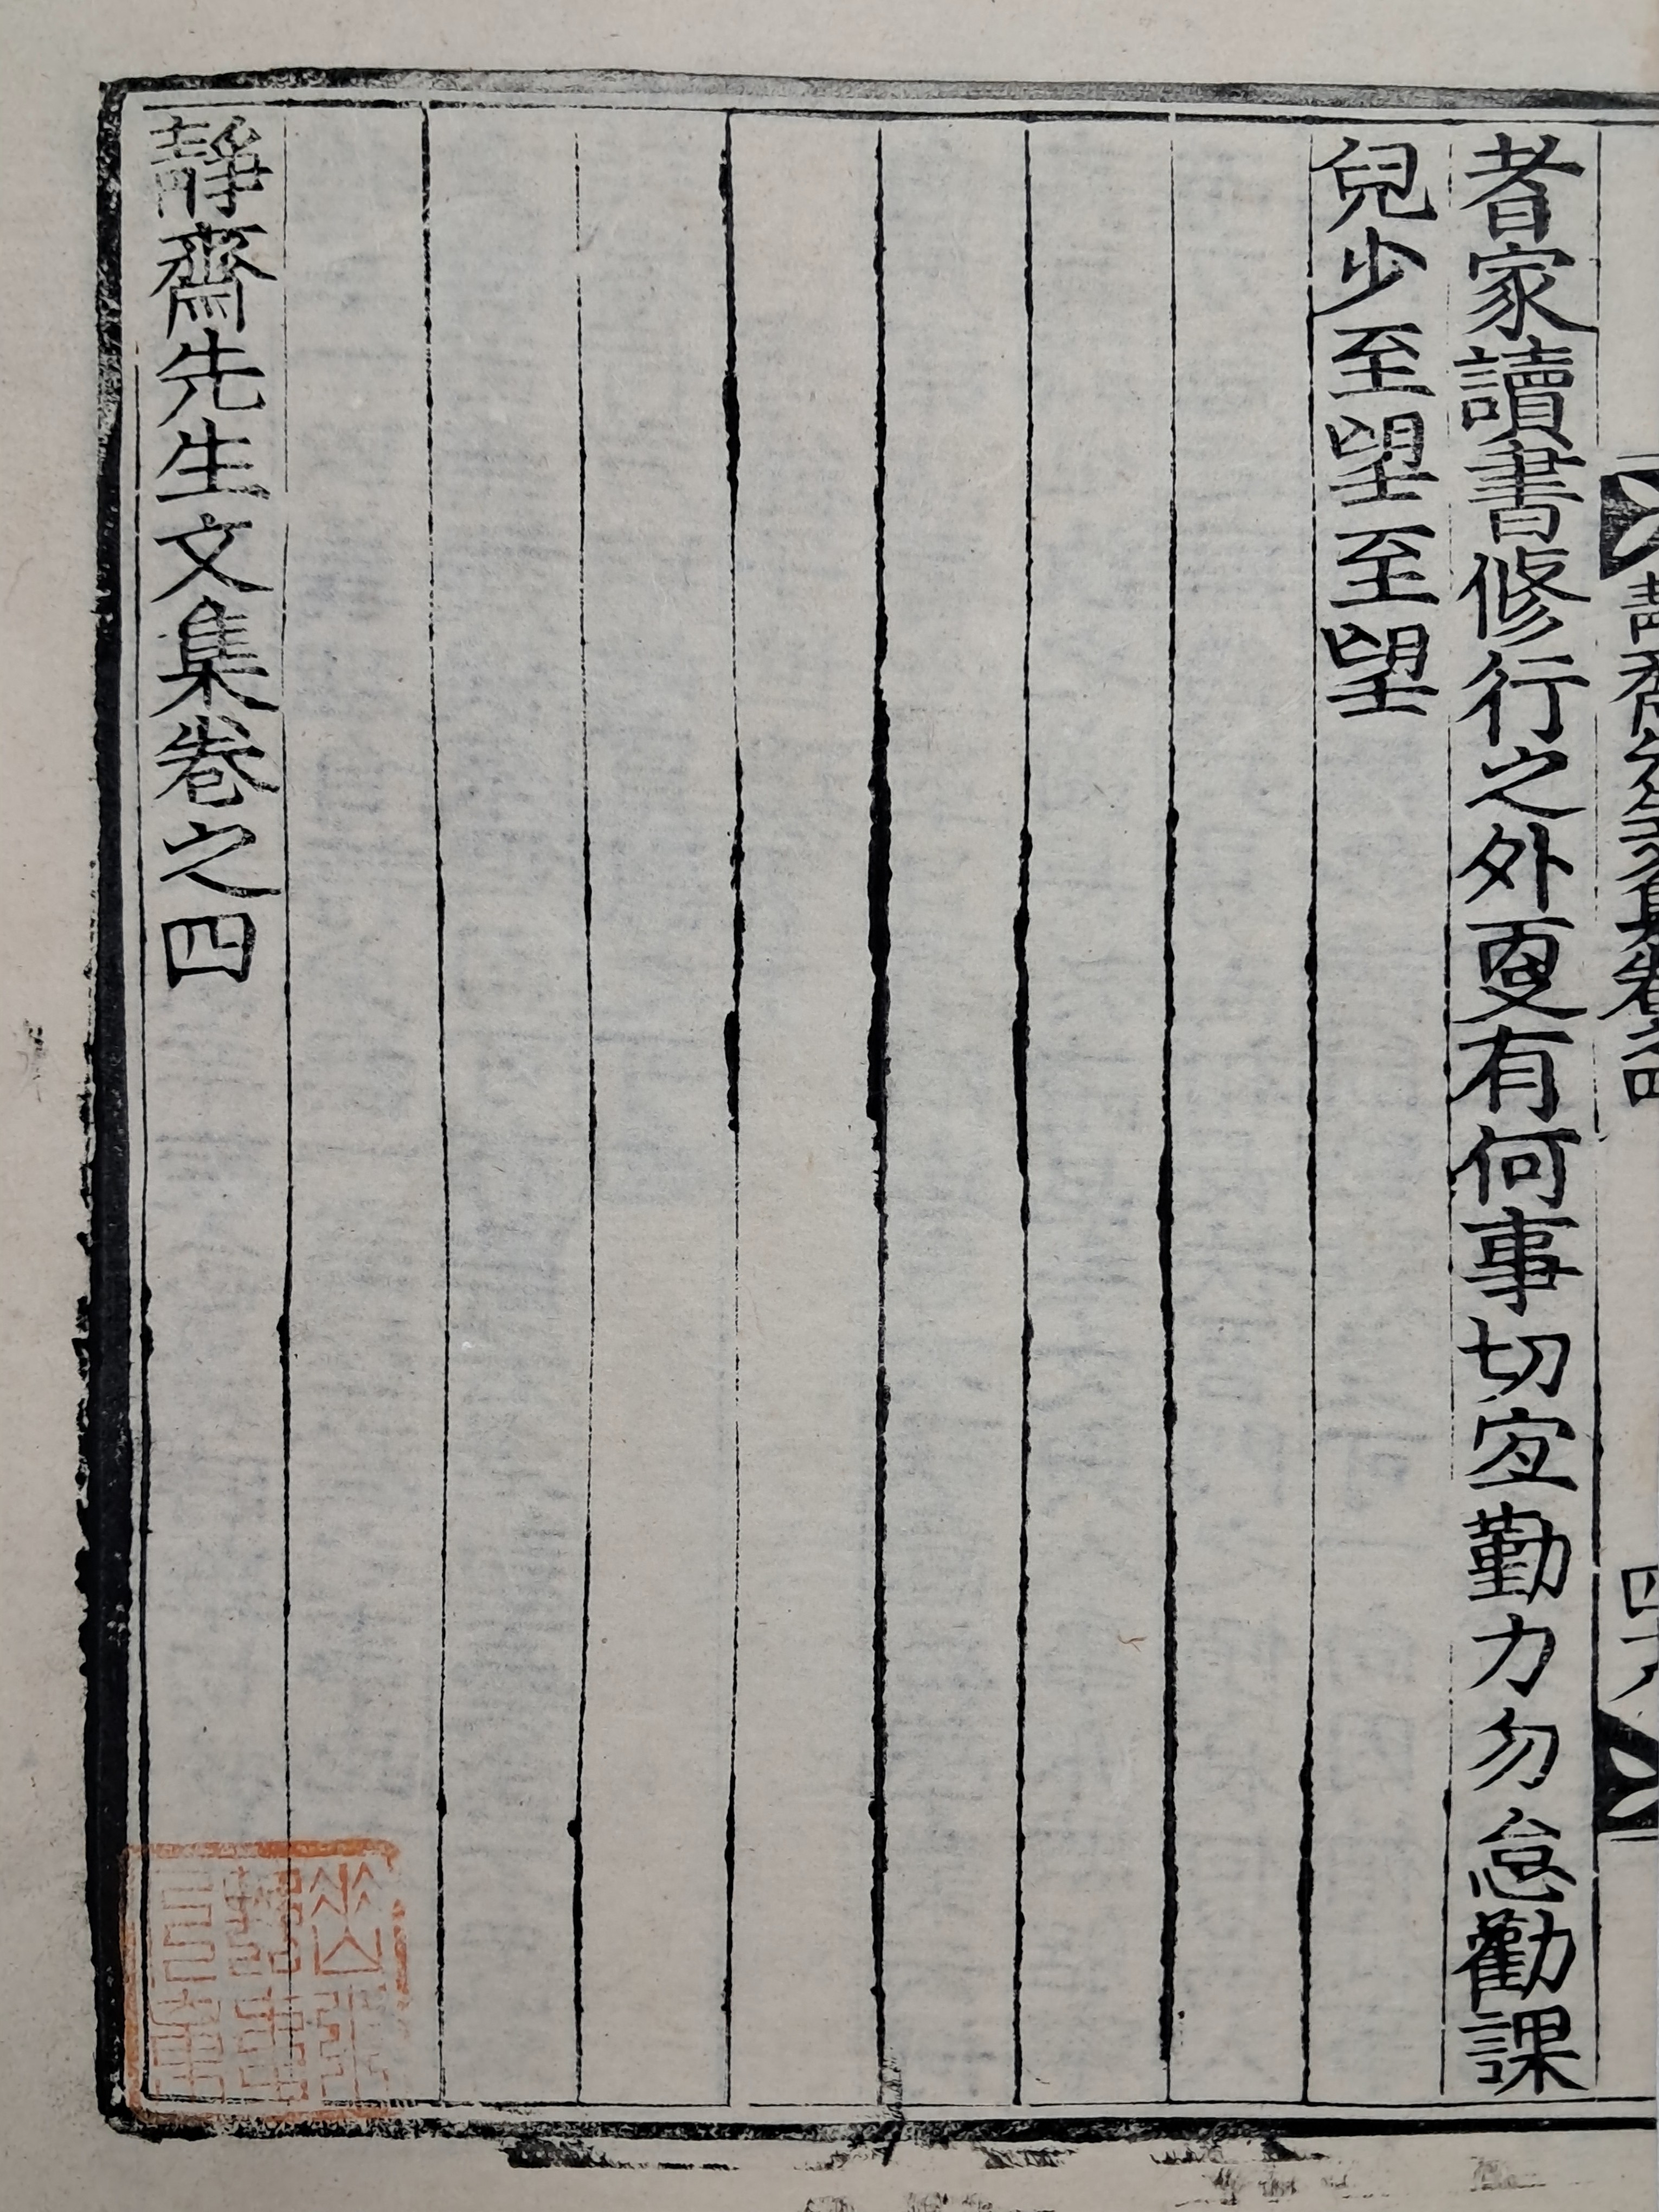 靜齋先生文集卷之四
四十八
者家讀書修行之外更有何事切宜勤力勿怠勸課
兒少至望至望
靜齋先生文集卷之四